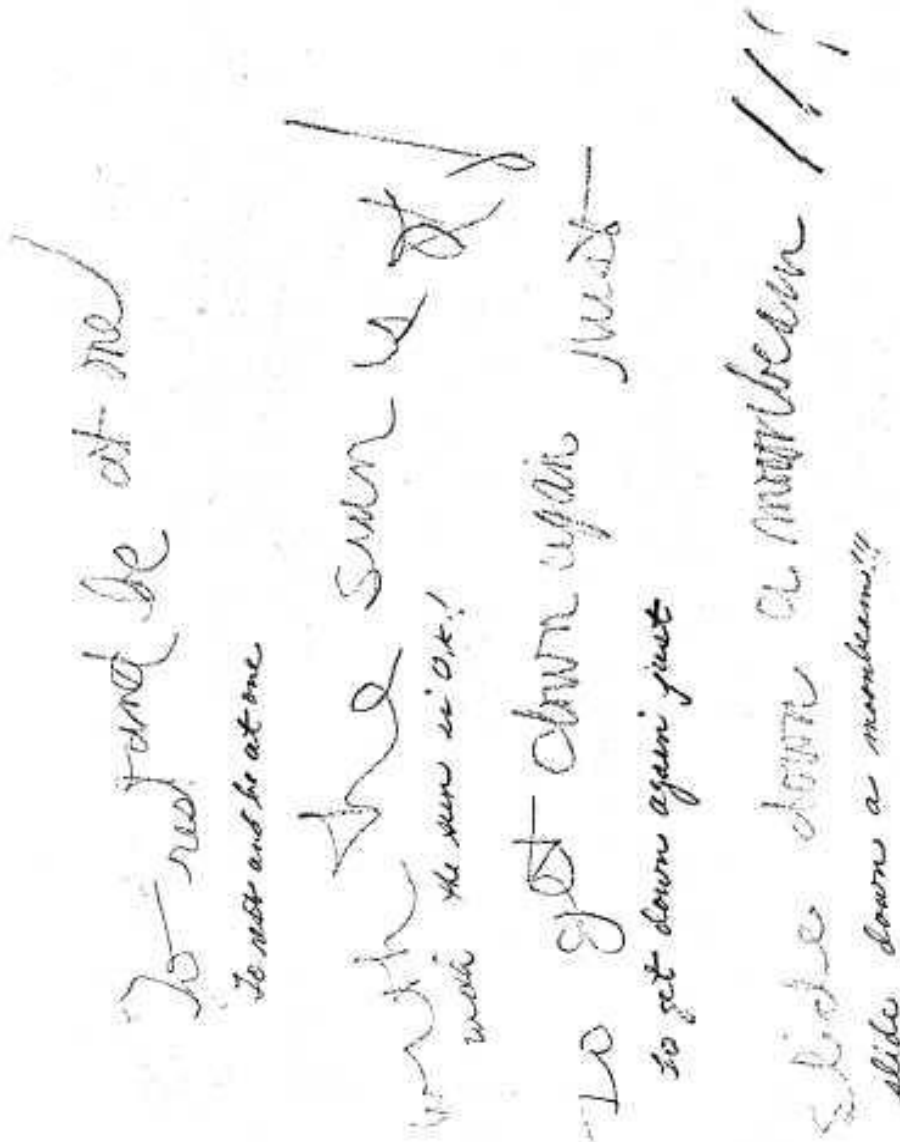 To rest and be at one
To rest and be at one
with the sun is O.K!
with the sun is O.K.!
to get down again just
to get down again just
slide down a moonbeam !!!
slide down a moonbeam!!!